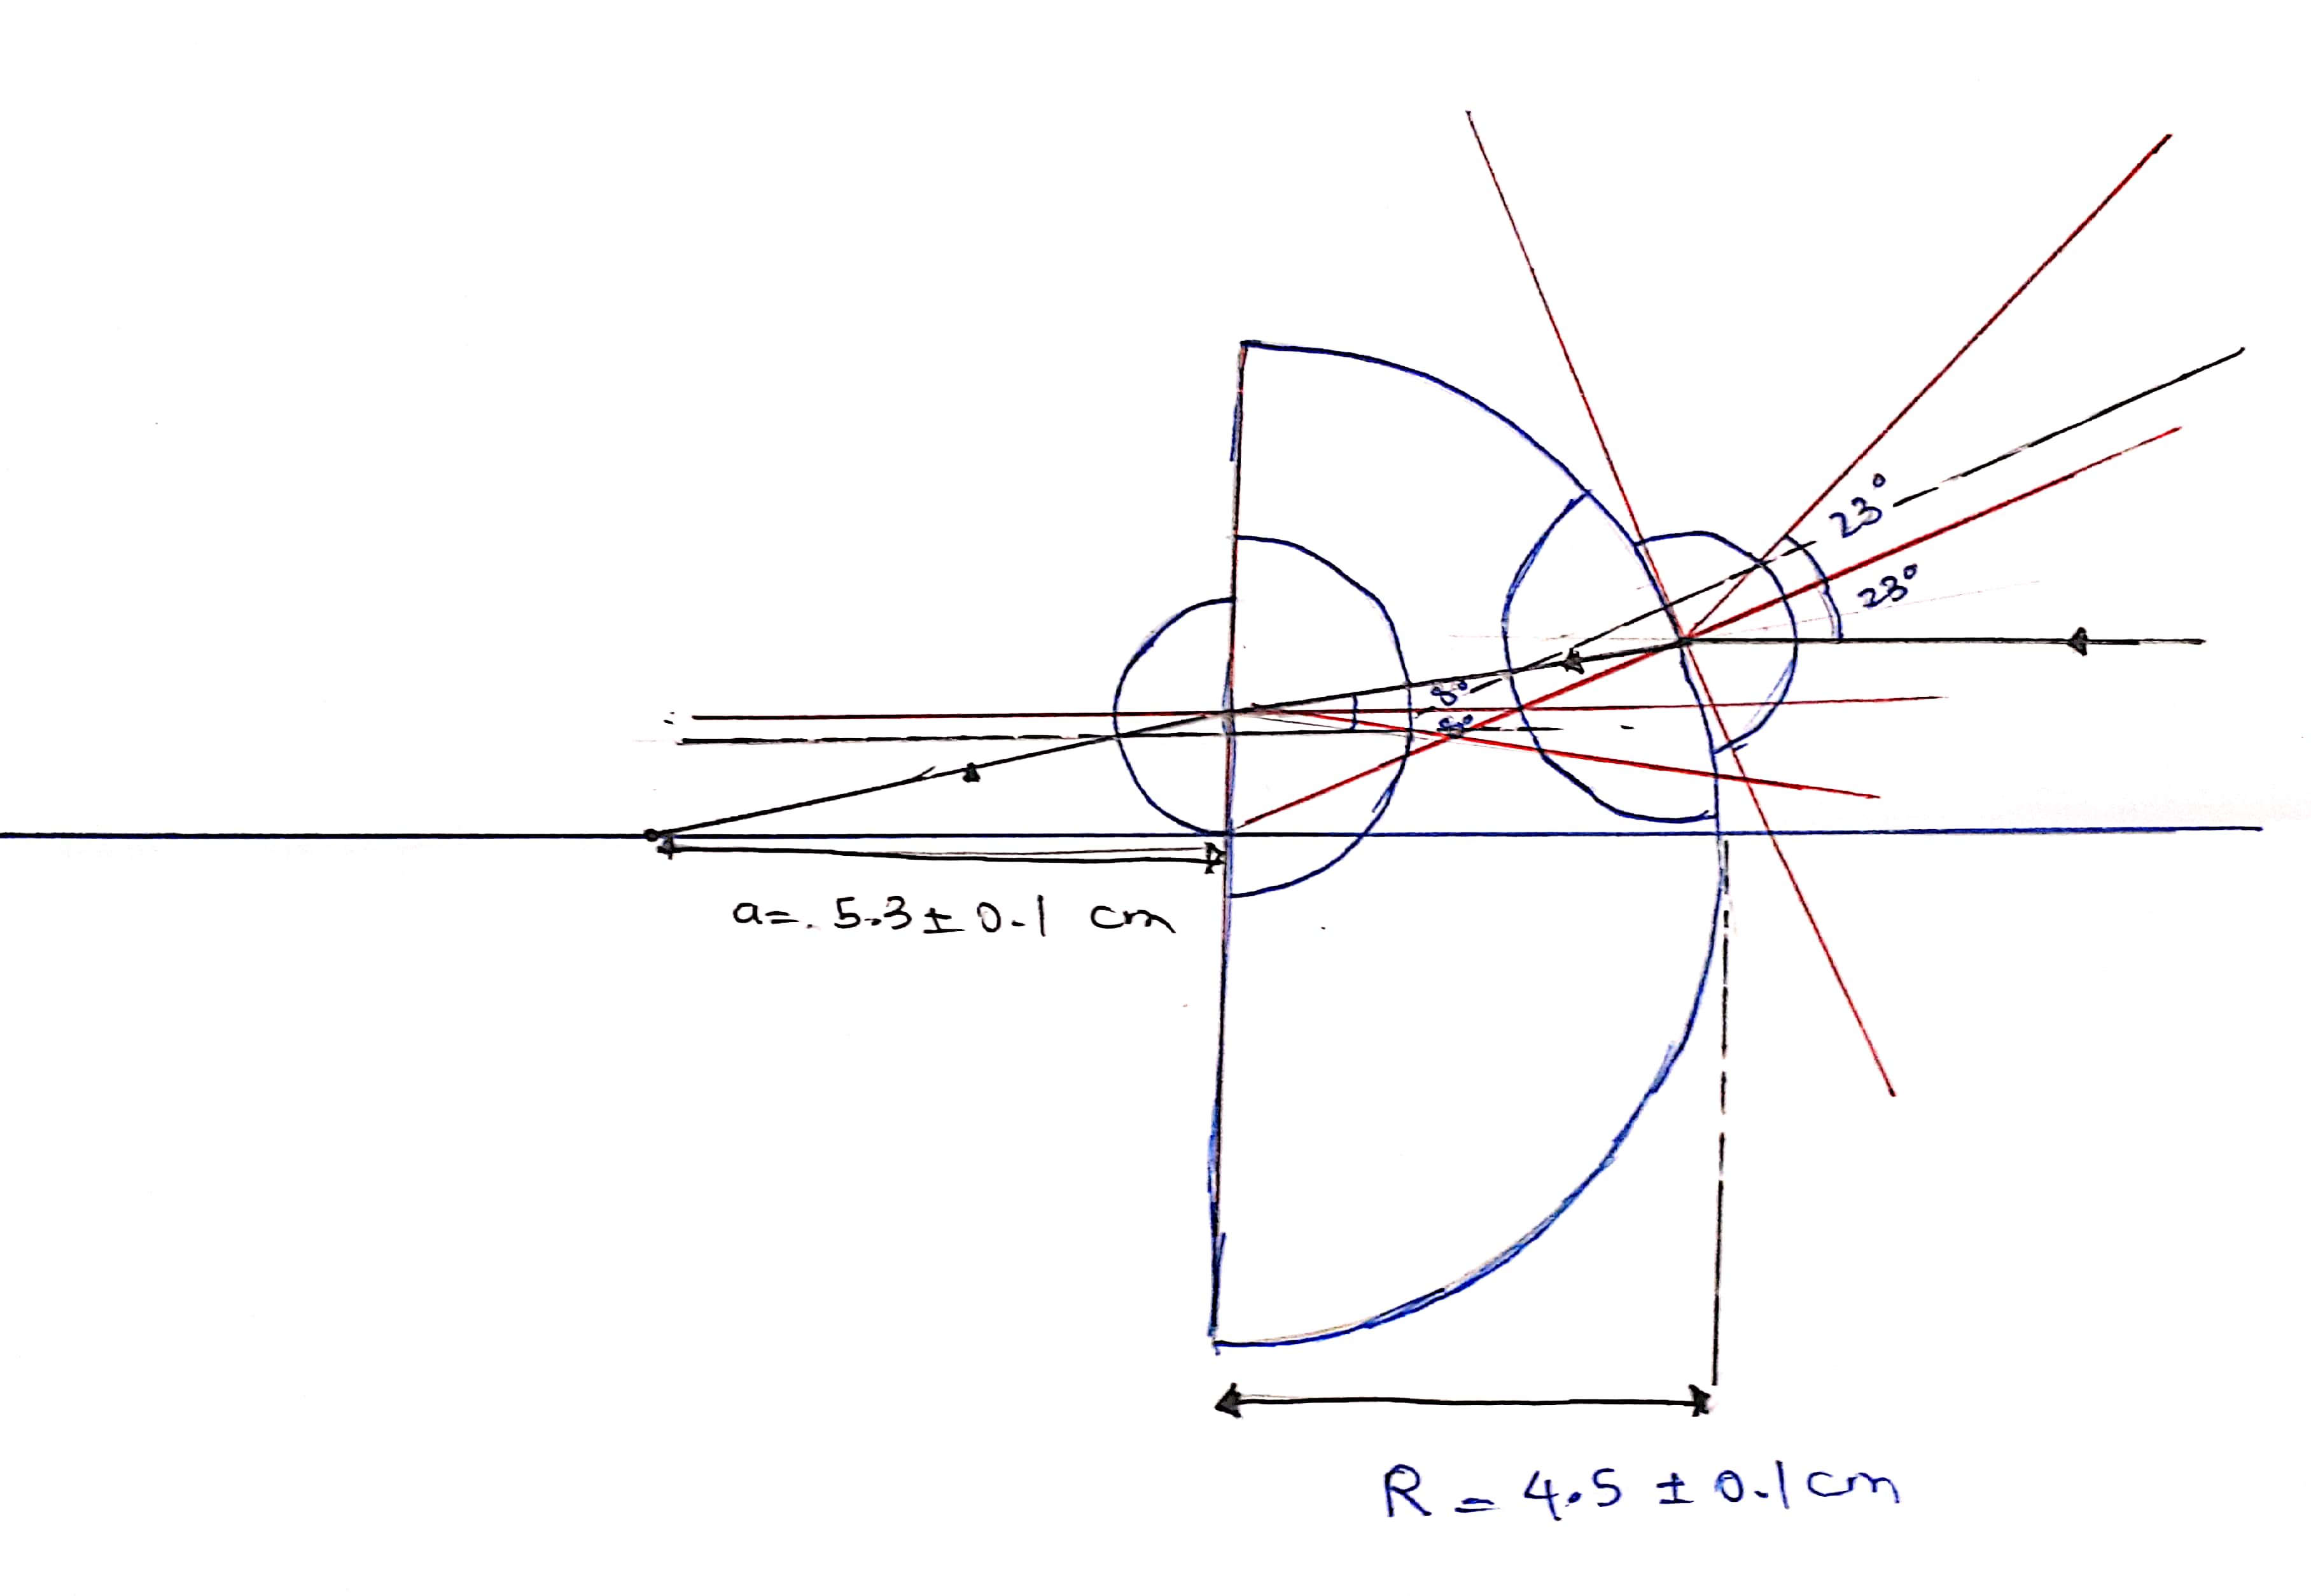 23°
23°
8°
8°
a = 5.3 ± 0.1 cm
R = 4.5 ± 0.1 cm